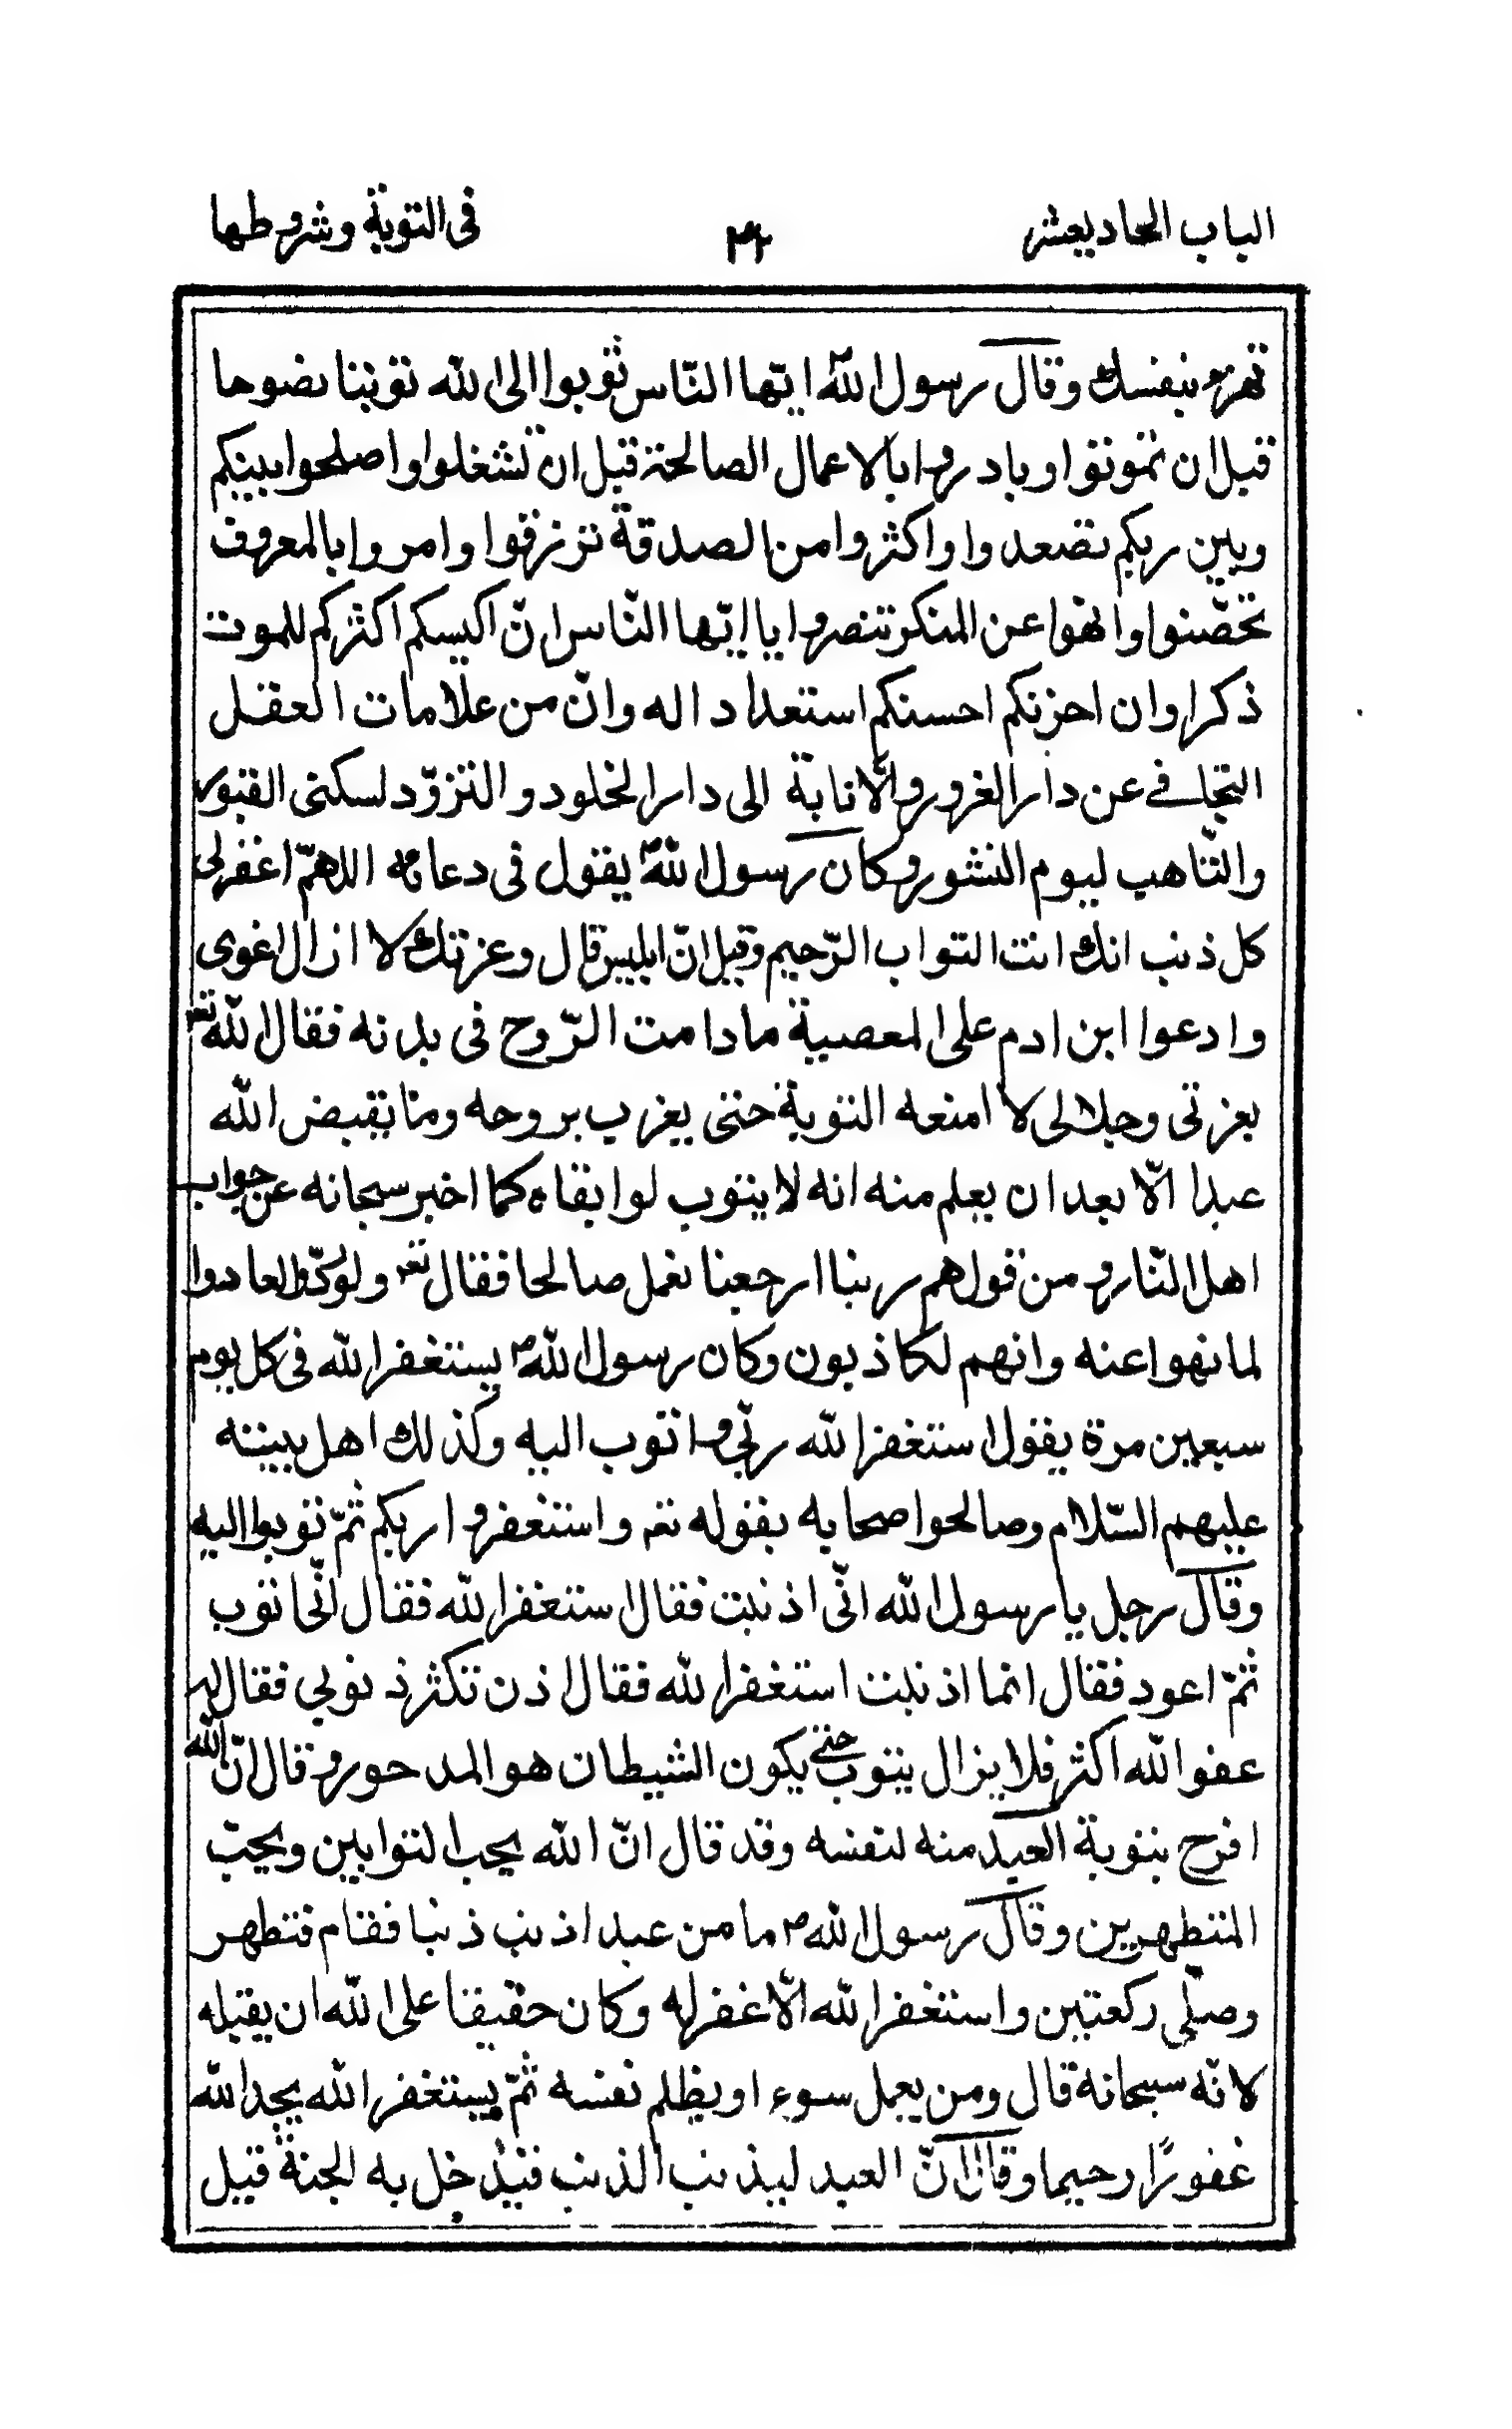 الباب الحاديعشر
في التوبة وشروطها
بنفسك وقال رسول اللهؐ ايّها النّاس ثوبوا الى الله توبتا نضوحا
قبل ان تموتوا وبادروا بالاعمال الصالحة قبل ان تشغلوا واصلحوا بينكم
وبين ربكم تضعدوا واكثروا من الصدقة ترزقوا وامروا بالمعروف
تحصّنوا وانهوا عن المنكر تنصروا يا ايّها النّاس انّ اكيسكم اكثركم للموت
ذكرا وان احزنكم احسنكم استعدادا له وانّ من علامات العقل
التجافي عن دار الغرور والانابة الى دار الخلود والتزوّد لسكنى القبور
والتّاهب ليوم النشور وكان رسول اللهؐ يقول في دعائه اللهمّ اغفر لي
كل ذنب انك انت التواب الرّحيم وقيل انّ ابليس قال وعزتك لا ازال اغوى
وادعوا ابن ادم على المعصية ما دامت الرّوح في بدنه فقال الله تعـ
بعزتى وجلالى لا امنعه التوبة حتى يغرب بروحه وما يقبض الله
عبدا الّا بعد ان يعلم منه انه لا يتوب لو ابقاه كما اخبر سبحانه عن جواب
اهل النّار ومن قولهم ربنا ارجعنا نعمل صالحا فقال تعـ ولو ردّوا لعادوا
لما نهوا عنه وانهم لكاذبون وكان رسول اللهؐ يستغفر الله في كل يوم
سبعين مرة يقول استغفر الله ربّي واتوب اليه وكذلك اهل بيته
عليهم السّلام وصالحوا صحابه بقوله تعـ واستغفروا ربكم ثمّ توبوا اليه
وقال رجل يا رسول الله انّى اذنبت فقال استغفر الله فقال انّى اتوب
ثمّ اعود فقال انما اذنبت استغفر الله فقال اذن تكثر ذنوبي فقال له
عفو الله اكثر فلا يزال يتوب حتى يكون الشيطان هو المدحور وقال انّ الله
افرح بتوبة العبد منه لنفسه وقد قال انّ الله يحب التوابين ويحبّ
المتطهرين وقال رسول اللهؐ ما من عبد اذنب ذنبا فقام فتطهر
وصلّى ركعتين واستغفر الله الّا غفر له وكان حقيقا على الله ان يقبله
لانّه سبحانه قال ومن يعمل سوء او يظلم نفسه ثمّ يستغفر الله يجد الله
غفورًا رحيما وقال انّ العبد ليذنب الذنب فيدخل به الجنة قيل